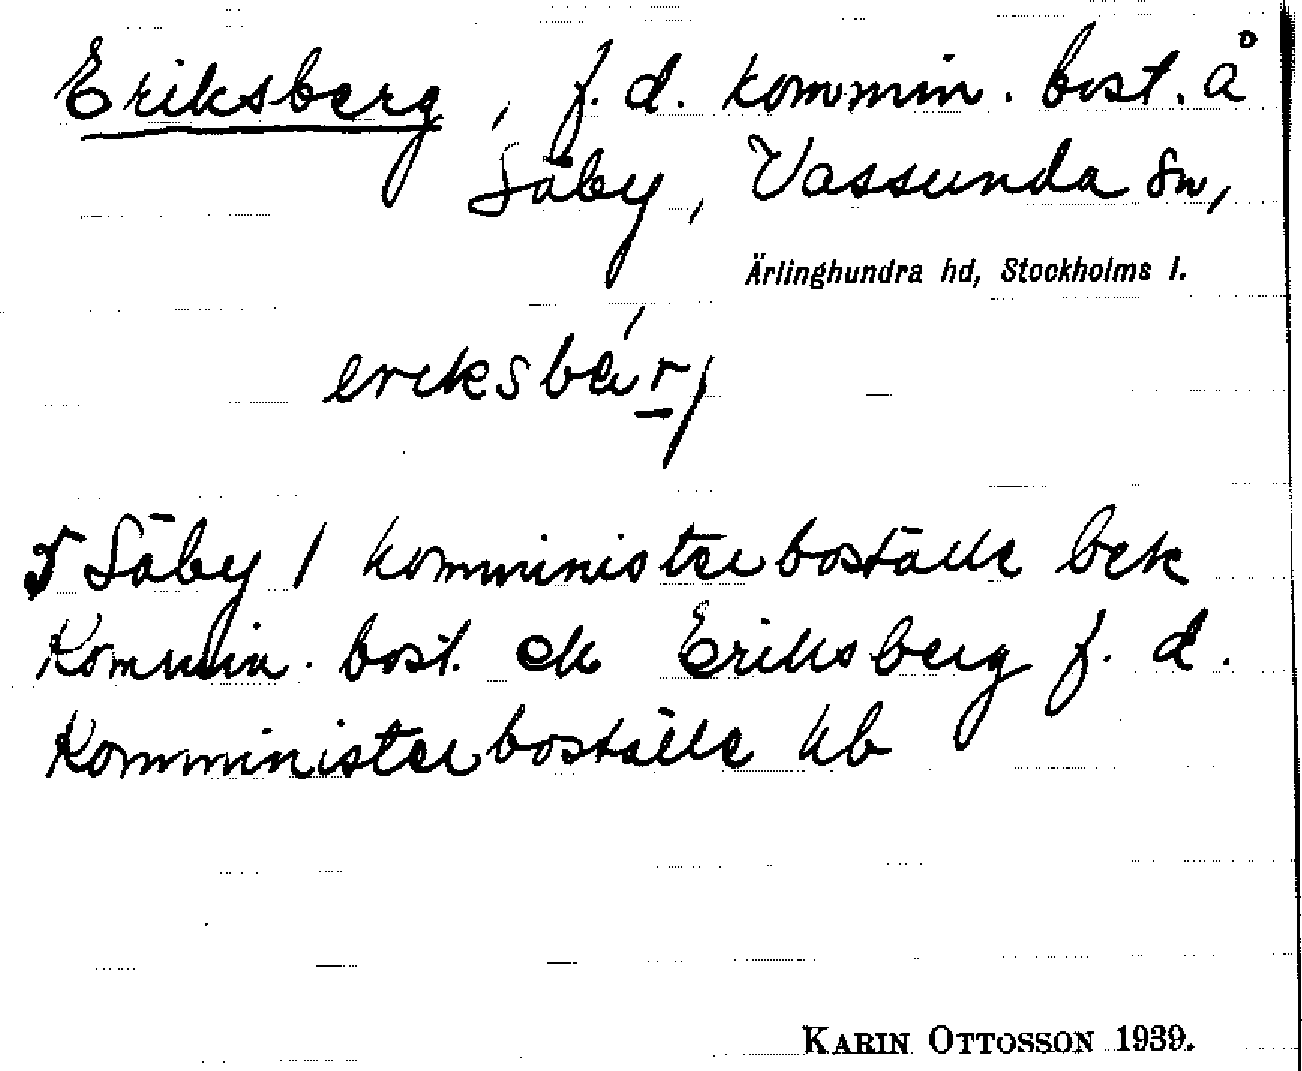 Eriksberg, f. d. kommin. bost. å
Säby, Vassunda sn,
Ärlinghundra hd, Stockholms l.
Säby 1 komministerboställe bek
Kommin. bost. ek Eriksberg f. d.
Komministerboställe kb
KARIN OTTOSSON 1939.